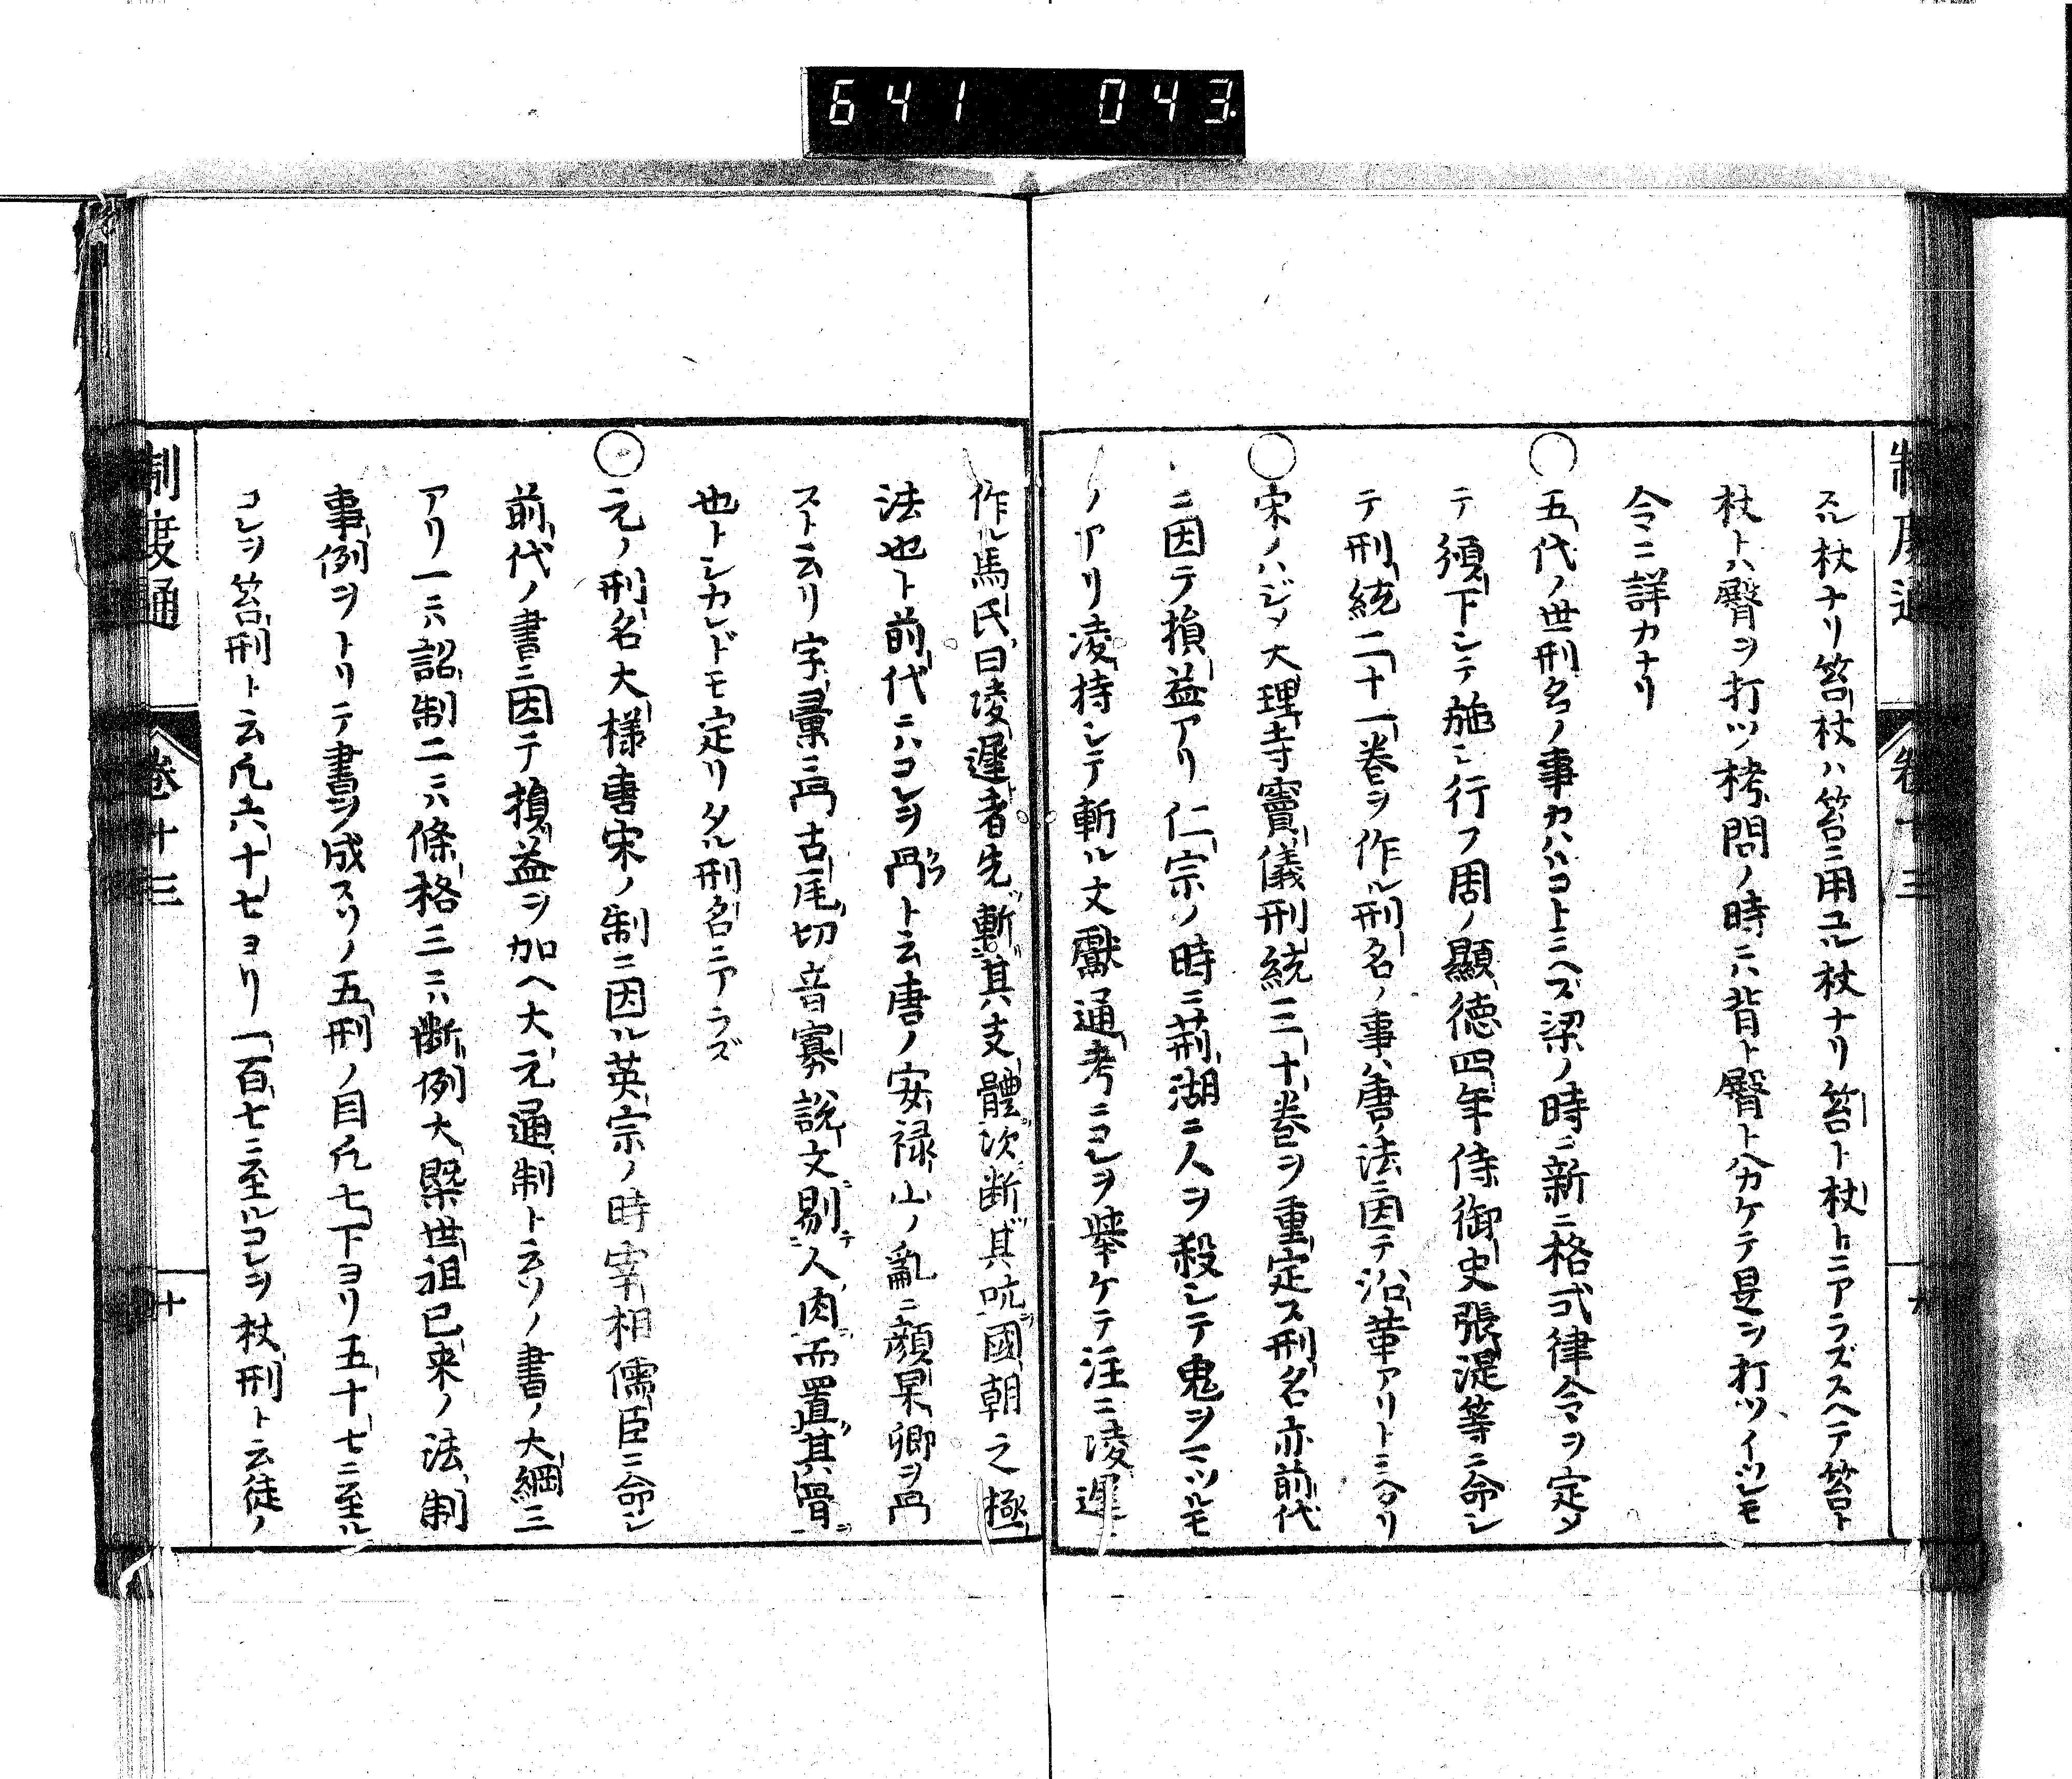 641 043
制度通 卷十三 九
スル杖ナリ笞杖ハ笞ニ用ユル杖ナリ笞ト杖トニアラズスヘテ笞ト
杖トハ臀ヲ打ツ栲問ノ時ニハ背ト臀トヘカケテ是ヲ打ツイツレモ
令ニ詳カナリ
○五代ノ世刑名ノ事カハルコトミヘズ梁ノ時ニ新ニ格式律令ヲ定メ
テ頒下シテ施シ行フ周ノ顯徳四年侍御史張湜等ニ命シ
テ刑統二十一卷ヲ作ル刑名ノ事ハ唐ノ法ニ因テ沿革アリトミヘタリ
○宋ノハジメ大理寺竇儀刑統三十卷ヲ重定ス刑名亦前代
ニ因テ損益アリ仁宗ノ時ニ荊湖ニ人ヲ殺シテ鬼ヲマツルモ
ノアリ凌持シテ斬ル文獻通考ニコレヲ舉ケテ注ニ凌遲
作ル馬氏曰凌遲者先斬其支體次断其吭國朝之極
法也ト前代ニハコレヲ冎ト云唐ノ安禄山ノ亂ニ顔杲卿ヲ冎
スト云リ字彙ニ冎古瓦切音寡說文剔人肉而置其骨
也トシカレドモ定リタル刑名ニアラズ
○元ノ刑名大様唐宋ノ制ニ因ル英宗ノ時宰相儒臣ニ命シ
前代ノ書ニ因テ損益ヲ加ヘ大元通制ト云ソノ書ノ大綱三
アリ一ニハ詔制二ニハ條格三ニハ断例大槩世祖已来ノ法制
事例ヲトリテ書ヲ成スソノ五刑ノ目凡七下ヨリ五十七ニ至ル
コレヲ笞刑ト云凡六十七ヨリ一百七ニ至ルコレヲ杖刑ト云徒ノ
制度通 卷十三 十